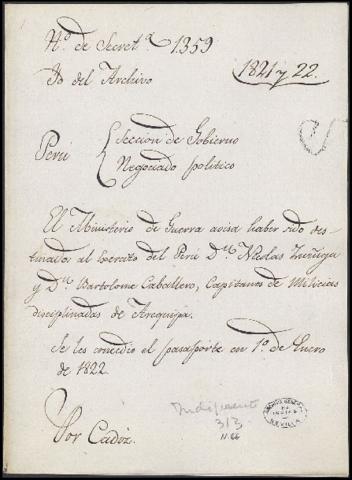 N.º de Secret.ª 1359
Id del Archivo
1821 y 22.
Perú { Seccion de Gobierno
Negociado politico
El Ministerio de Guerra avisa haber sido des-
tinados al Exercito del Perú D.n Nicolas Zuñiga
y D.n Bartolome Caballero, Capitanes de Milicias
disciplinadas de Arequipa.
Se les concedio el pasaporte en 1.º de Enero
de 1822.
Por Cadiz.
Indiferente
313
ARCHIVO GENERAL
DE
INDIAS
SEVILLA